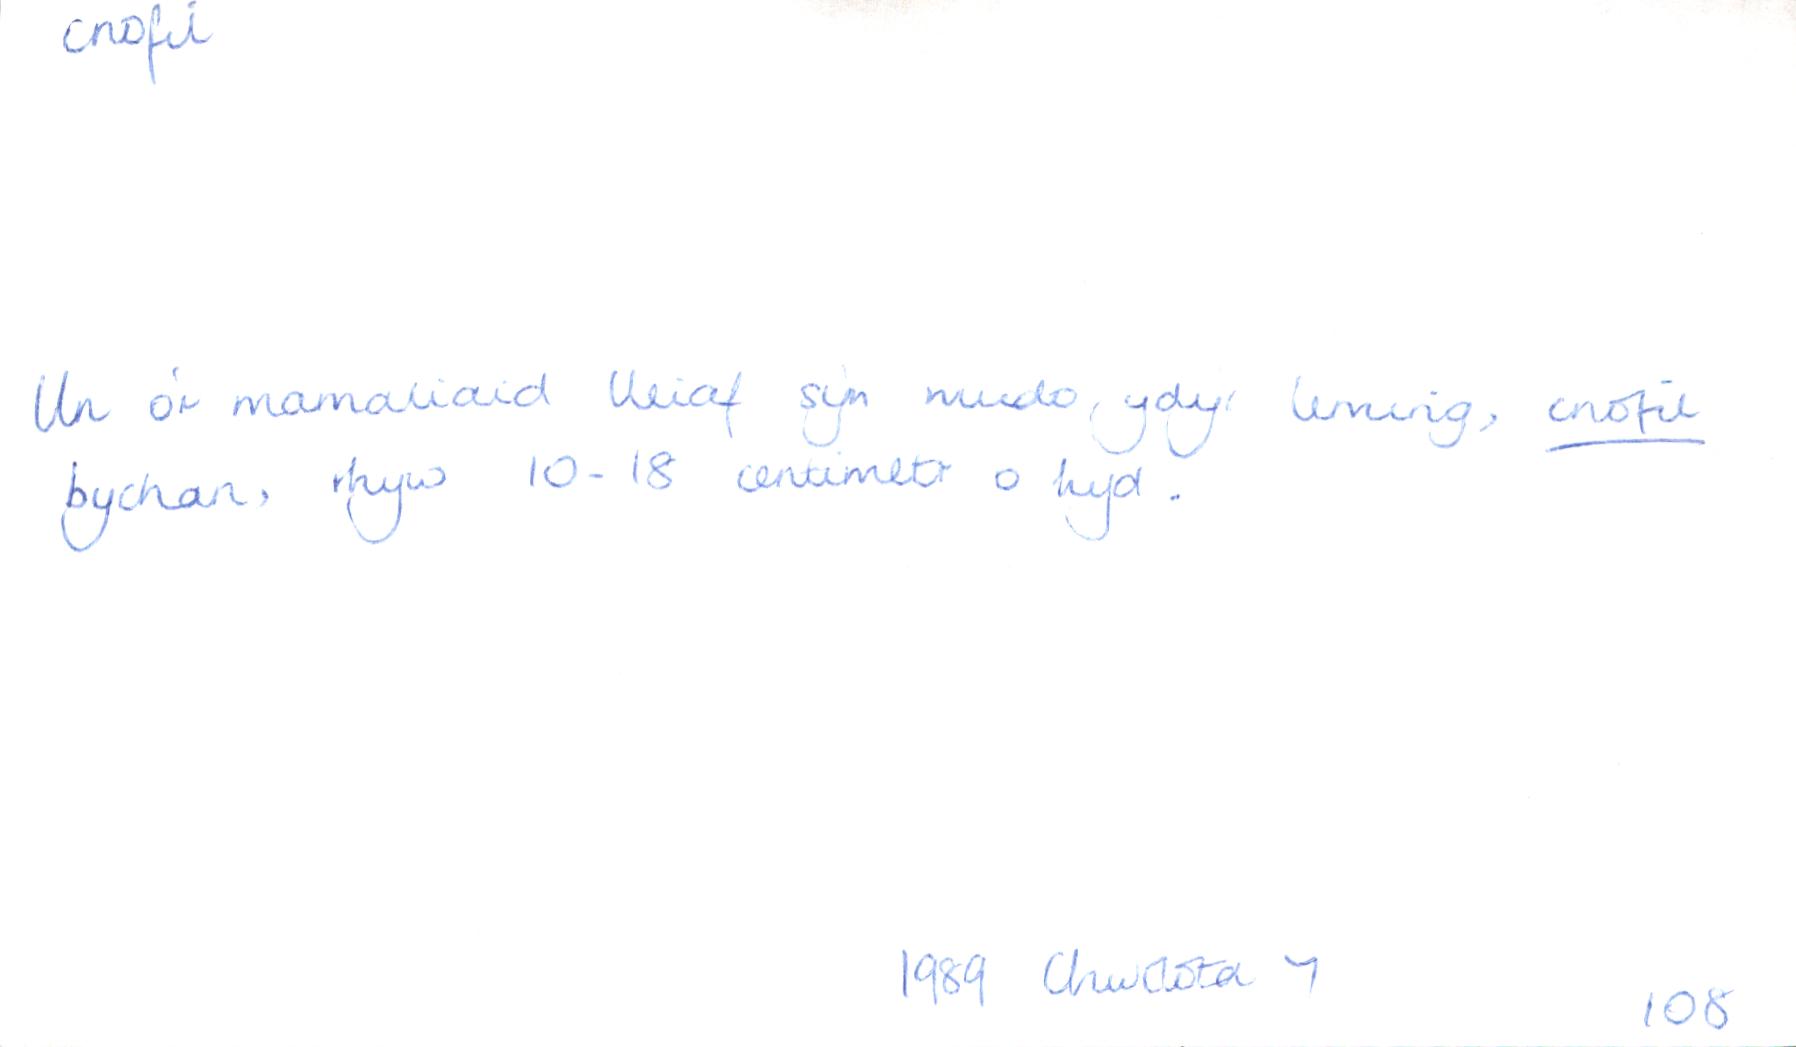 cnofil
Un o'r mamaliaid lleiaf sy'n mudo, ydy'r leming, cnofil
bychan, rhyw 10-18 centimetr o hyd.
1989 Chwilota 7
108